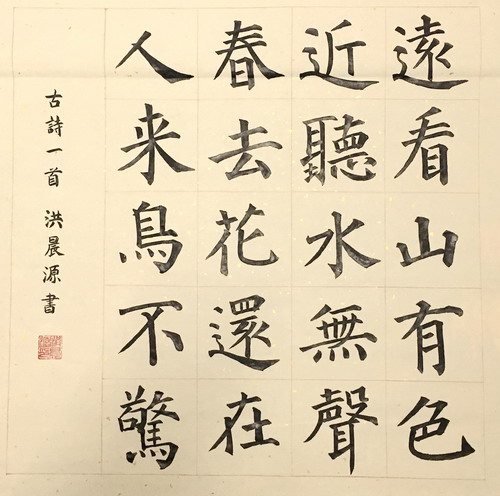 遠看山有色
近聽水無聲
春去花還在
人来鳥不驚
古詩一首 洪晨源書